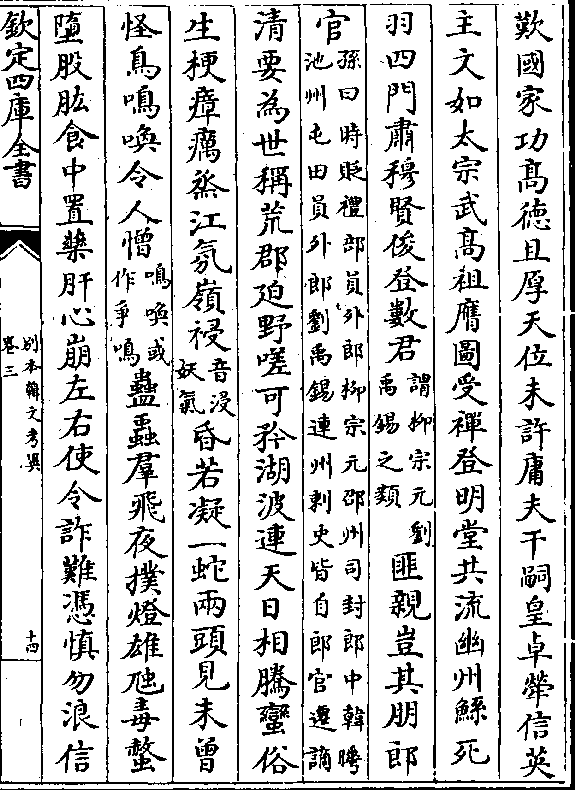 歎國家功髙德且厚天位未許庸夫干嗣皇卓犖信英
主文如太宗武髙祖膺圖受禪登明堂共流幽州鯀死
羽四門肅穆賢俊登數君謂柳宗元劉禹錫之類匪親豈其朋郎
官孫曰時貶禮部員外郎柳宗元邵州司封郎中韓曄池州屯田員外郎劉禹錫連州刺史皆自郎官遷謫
清要為世稱荒郡廹野嗟可矜湖波連天日相騰蠻俗
生梗瘴癘烝江氛嶺祲音浸妖氣昏若凝一蛇兩頭見未曾
怪鳥鳴喚令人憎鳴喚或作爭鳴蠱蟲羣飛夜撲燈雄虺毒螫
墮股肱食中置藥肝心崩左右使令詐難憑慎勿浪信
欽定四庫全書
別本韓文考異
卷三
十四